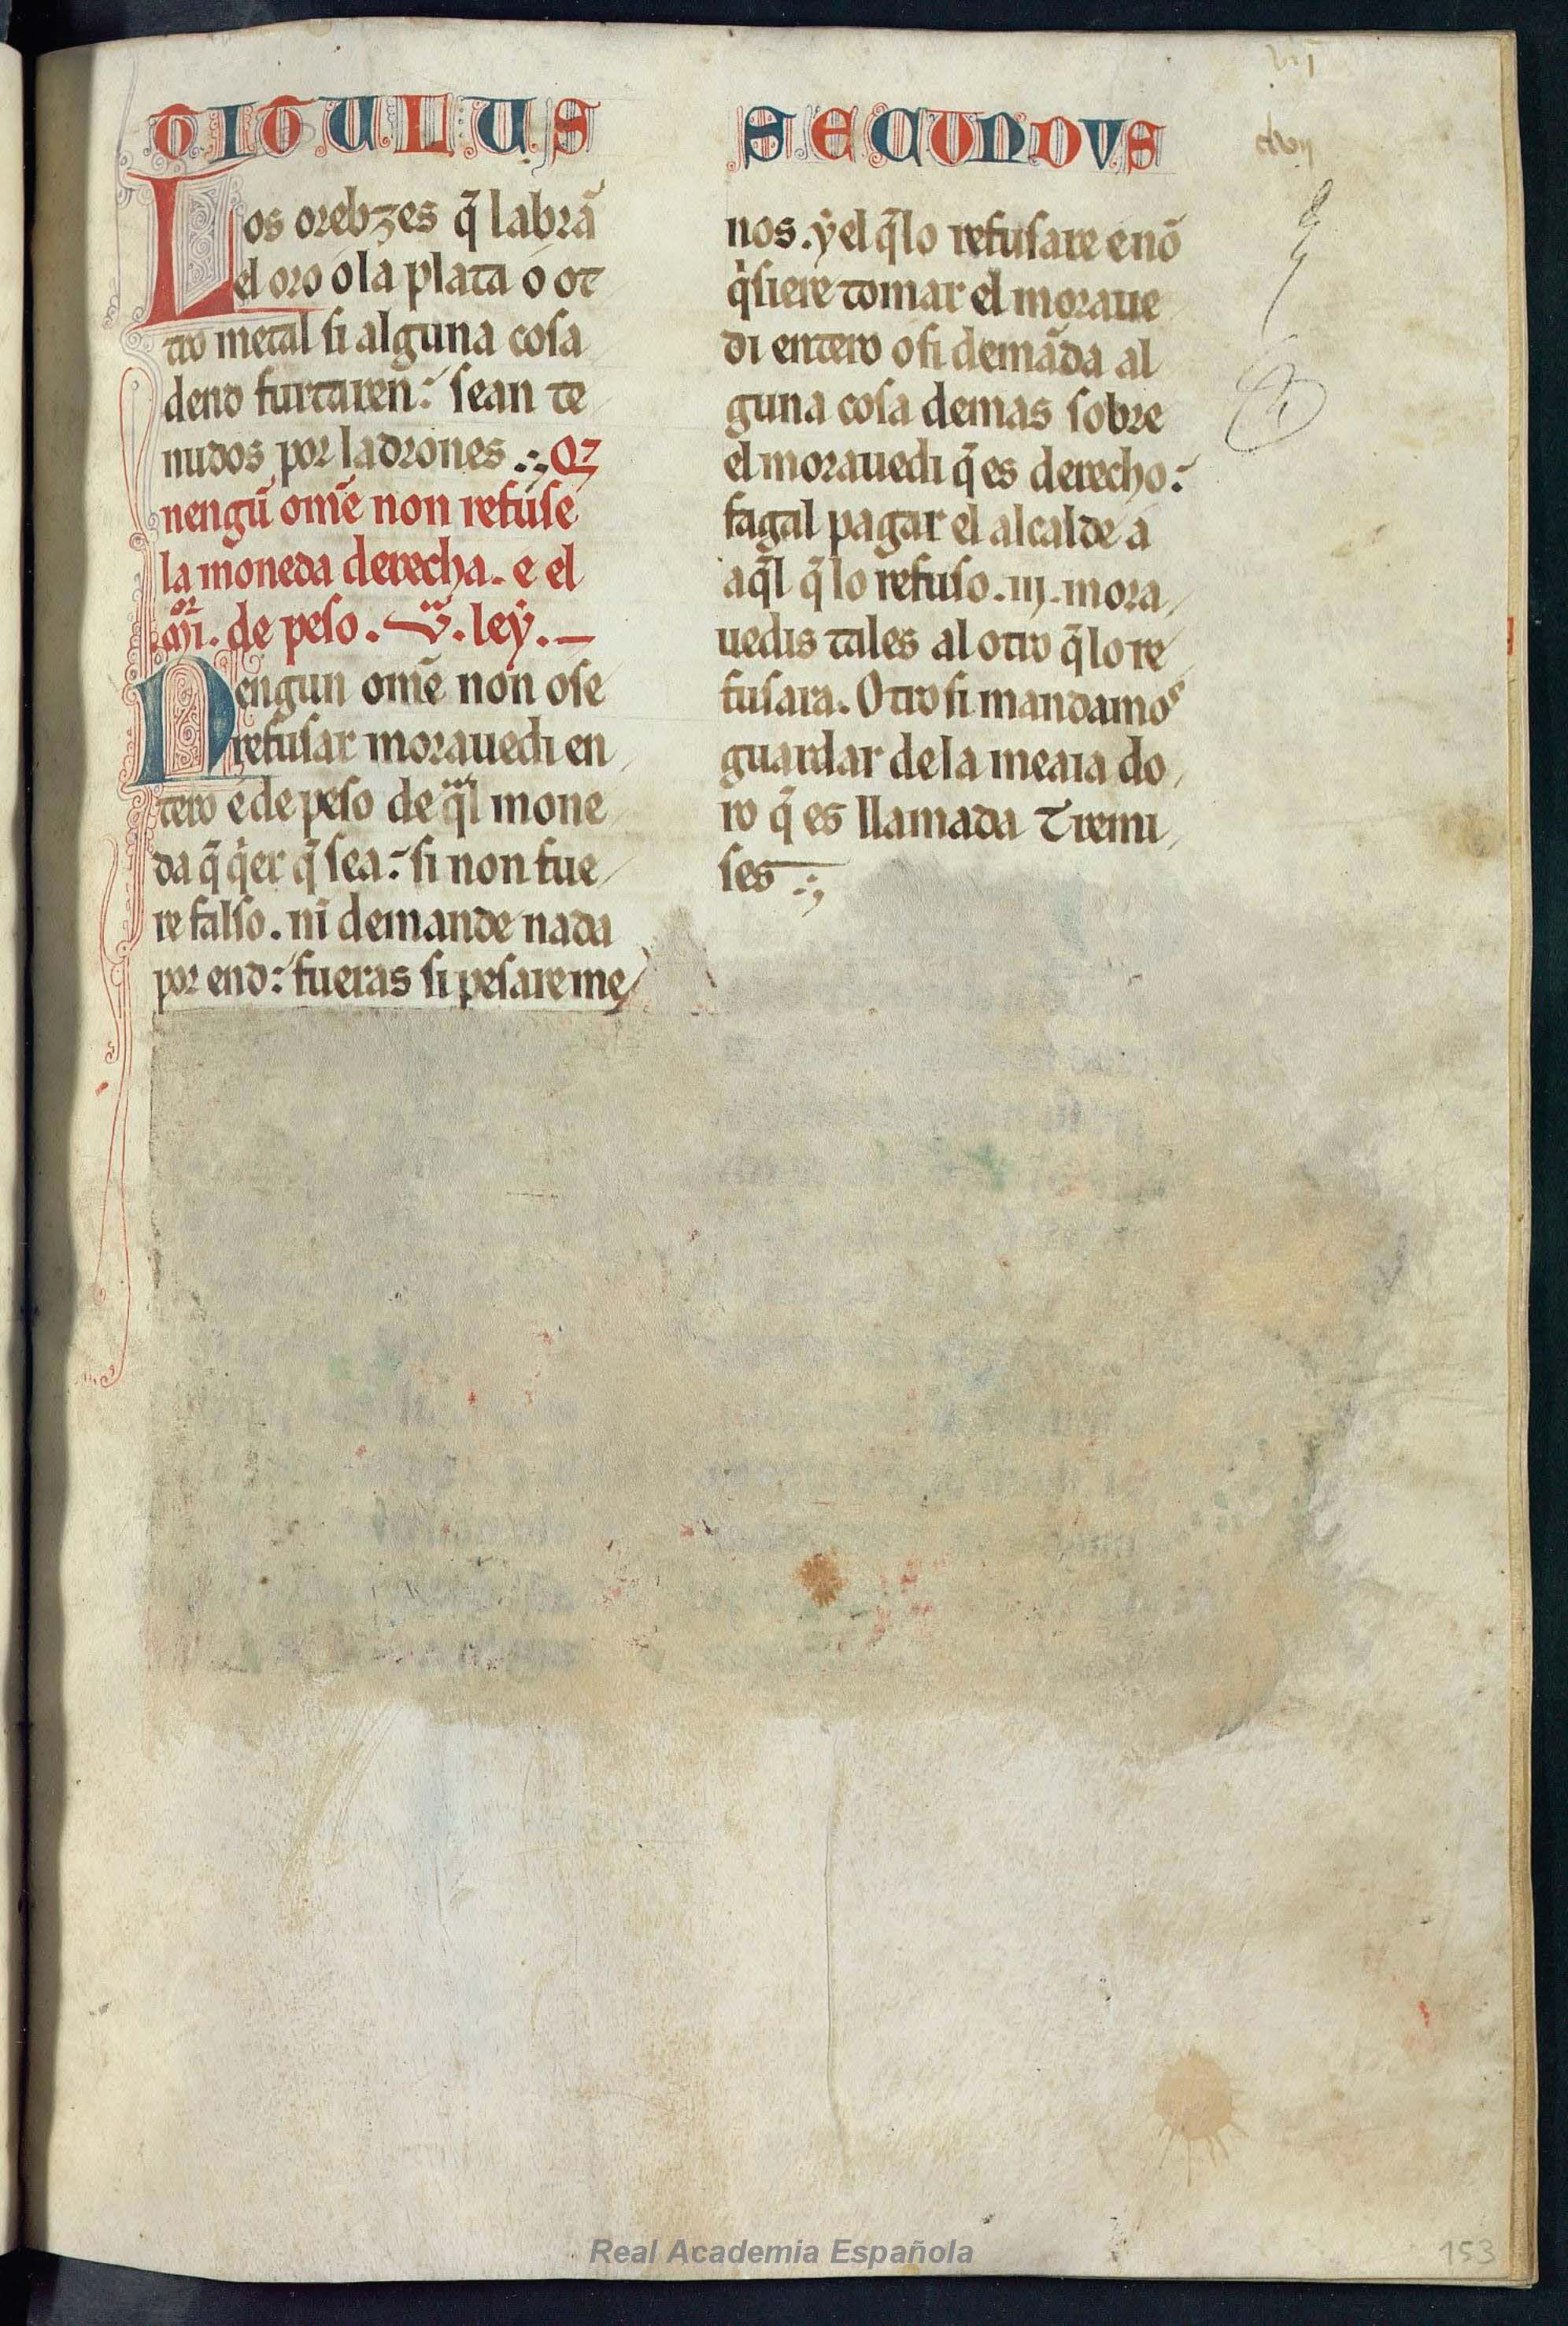 TITULUS
Los orebzes q̃ labrã
el oro o la plata o ot
tro metal si alguna cosa
dend furtaren: sean te
nudos por ladrones .:, Qꝫ
nengũ om̃e non refuse
la moneda derecha. e el
de peso. ley. —
Nengun om̃e non ose
refusar morauedi en
tero e de peso de q̃l mone
da q̃ q̉er q̃ sea: si non fue
re falso. nĩ demande nada
por end: fueras si pesare me
SECUNDVS
nos. ẏ el q̃ lo refusare e nõ
q̉siere tomar el moraue
di entero o si demãda al
guna cosa demas sobre
el morauedi q̃ es derecho:
fagal pagar el alcalde a
aq̃l q̃ lo refuso. iij. mora
uedis tales al otro q̃ lo re
fusara. Otro si mandamoˢ
guardar de la meaia do
ro q̃ es llamada Tremi
ses .:,
Real Academia Española
153